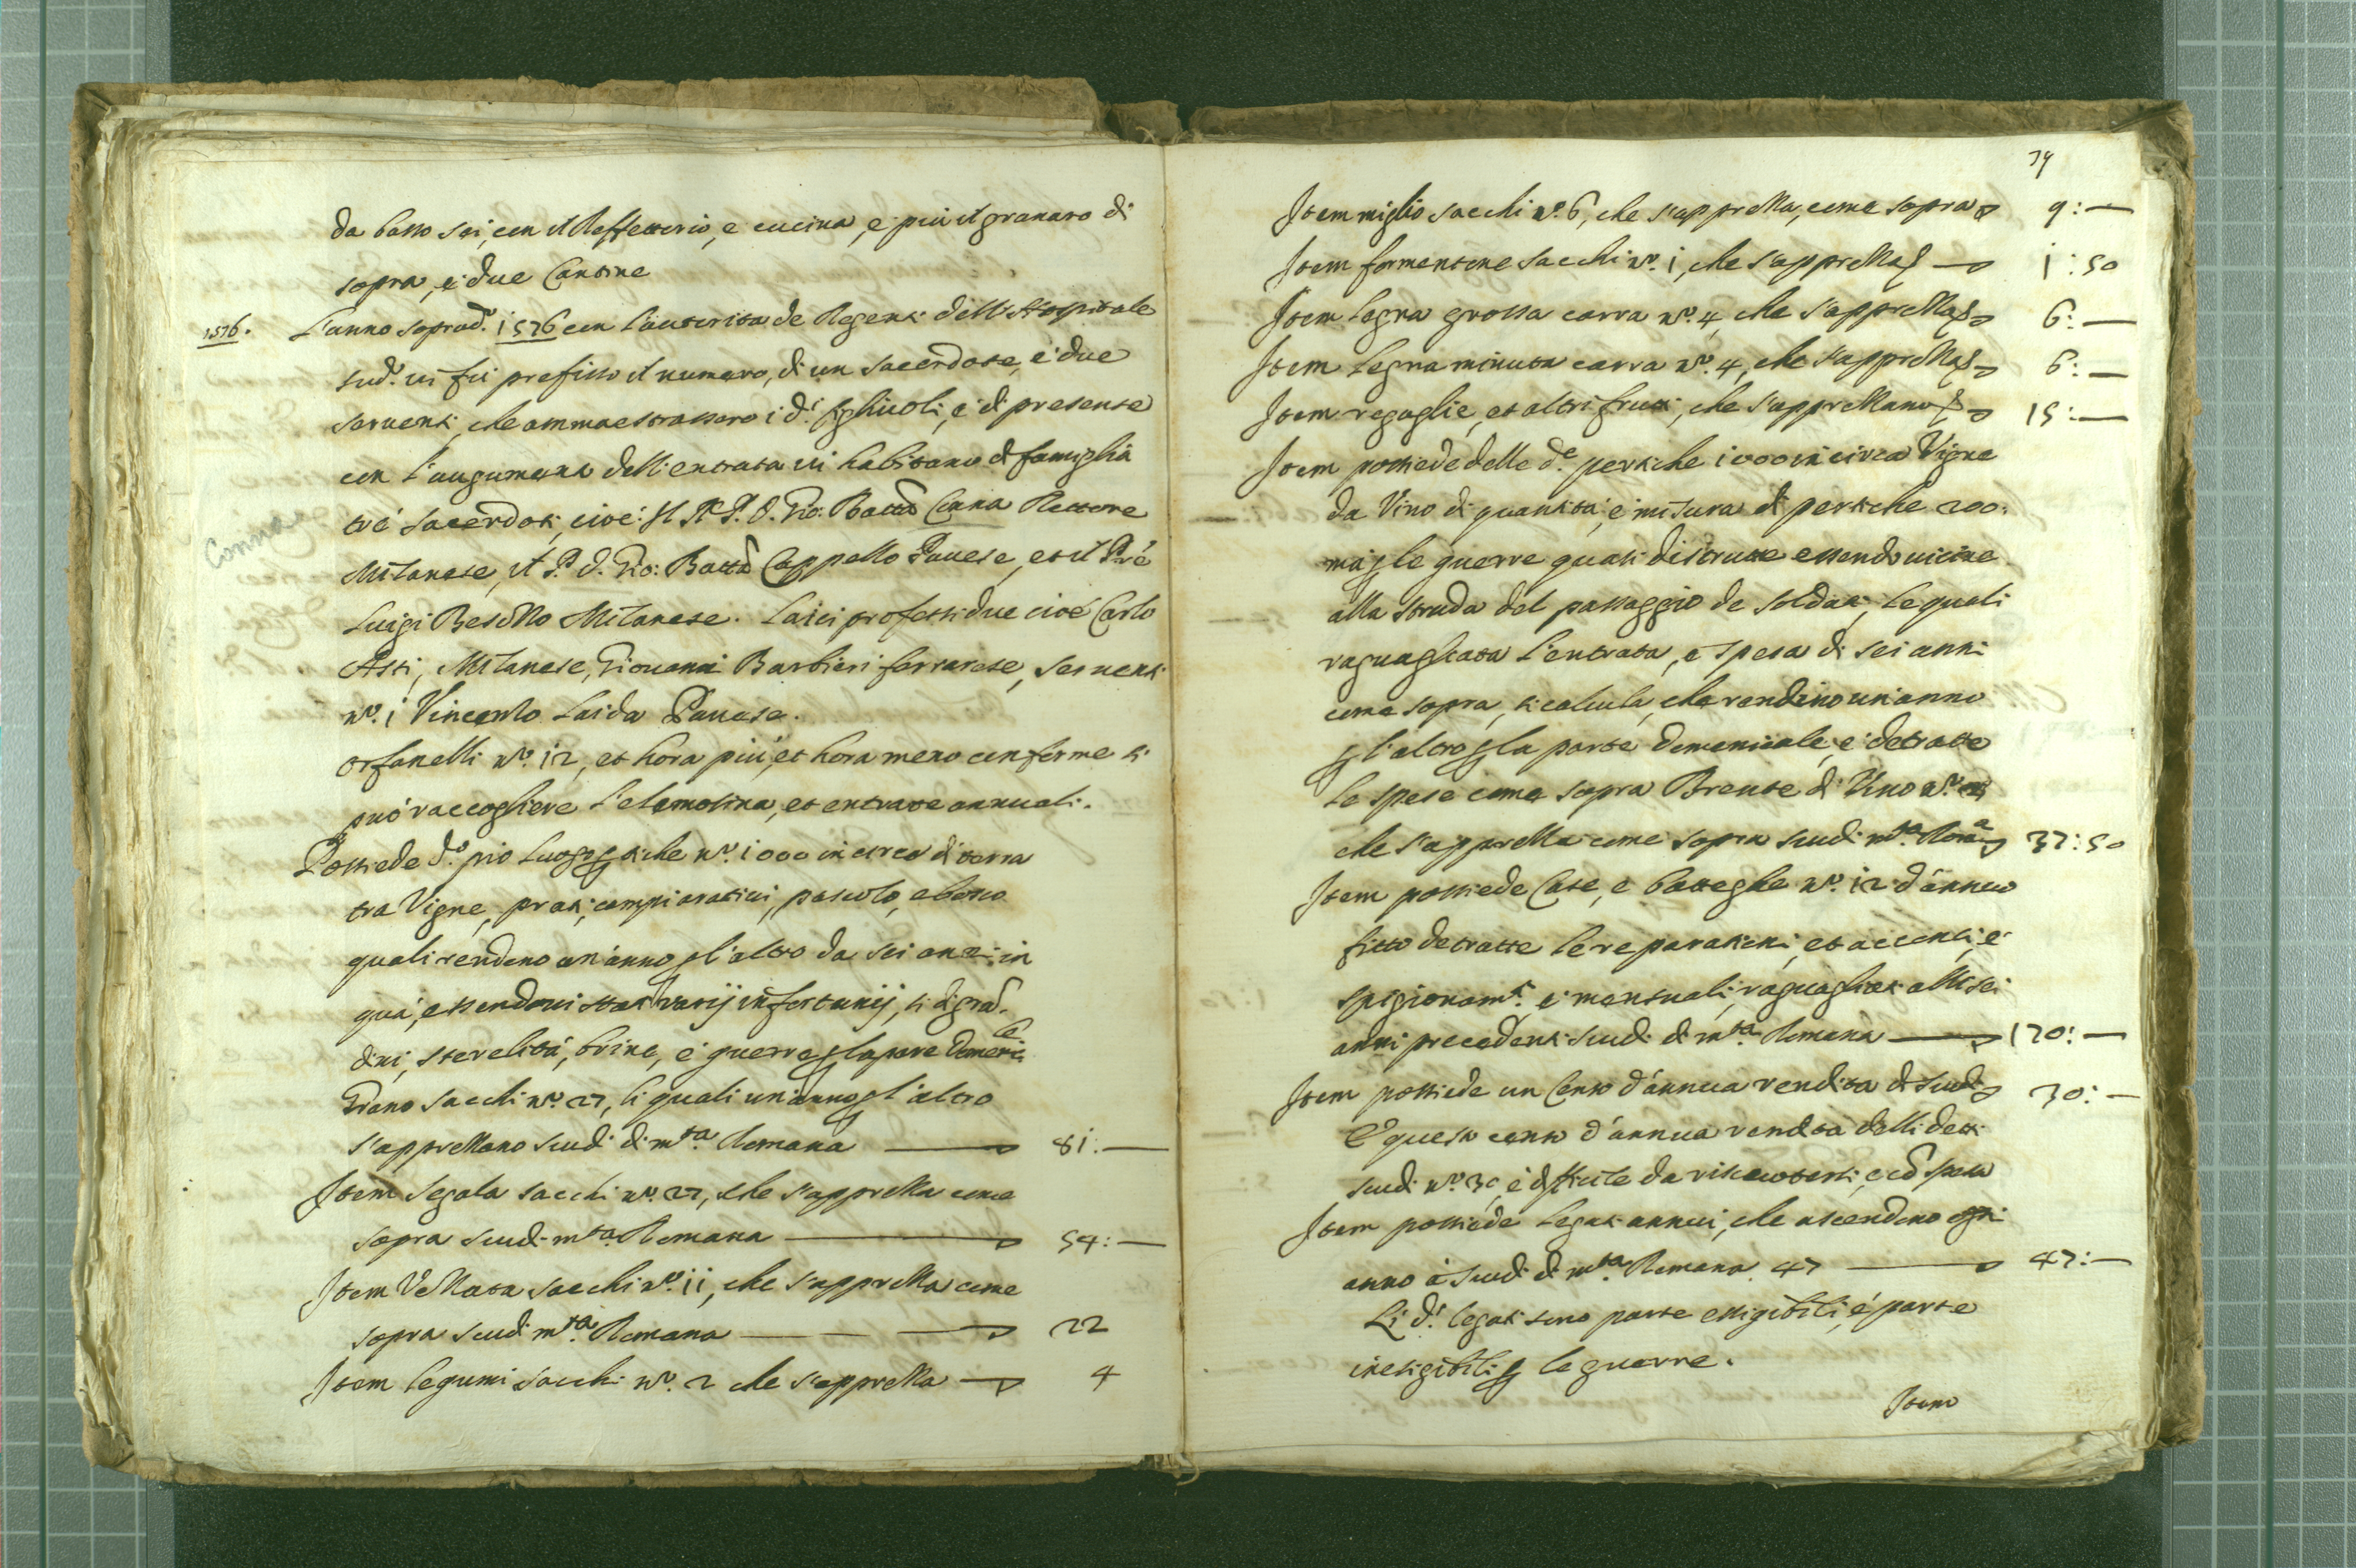 da basso sei, con il Reffettorio, e cucina, e più il granaro di
sopra, e due Cantine
1576. L'anno soprad.º 1576 con l'auttorità de Regenti dell'Hospitale
sud.º vi fù prefisso il numero, di un sacerdote, e due
serventi, che ammaestrassero i d.i figliuoli, e di presente
con l'augumento dell'entrata vi habitano di famiglia
trè sacerdoti, cioè: Il R. P. D. Gio: Batta Cana Rettore
Conna
Milanese, il P. D. Gio: Batta Cappello Pavese, et il P.re
Luigi Besozzo Milanese. Laici professi due cioè Carlo
Asti, Milanese, Giovanni Barbieri ferrarese, serventi
nº. 1 Vincenzo Laida Pavese.
Orfanelli nº. 12, et hora più, et hora meno conforme si
può raccogliere l'elemosina, et entrate annuali.
Possiede d.º pio luogo ꝑtiche nº. 1000 in circa di terra
tra Vigne, prati, campi aratiui, pascolo, e bosco
quali rendono un'anno ꝑ l'altro da sei anni in
quà, essendoui stati varij infortunij, si di gran-
dini, sterelità, brine, e guerre ꝑ la parte domenicale
Grano sacchi nº. 27, li quali un'anno ꝑ l'altro
s'apprezzano scudi di m.ta Romana 81:—
Item Segala sacchi nº. 27, che s'apprezza come
sopra scudi m.ta Romana 54:—
Item Vezzata sacchi nº. 11, che s'apprezza come
sopra scudi m.ta Romana 22
Item legumi sacchi nº. 2 che s'apprezza 4
79
Item miglio sacchi nº. 6, che s'apprezza, come sopra 9:—
Item formentone sacchi nº. 1, che s'apprezza ꝑ 1:50
Item legna grossa carra nº. 4, che s'apprezza ꝑ 6:—
Item legna minuta carra nº. 4, che s'apprezza ꝑ 6:—
Item regaglie, et altri frutti, che s'apprezzano ꝑ 15:—
Item possiede delle d.e pertiche 1000 in circa Vigne
da Vino di quantità, e misura di pertiche 200.
mà ꝑ le guerre quasi distrutte essendo uicine
alla strada del passaggio de soldati, le quali
raguagliata l'entrata, e spesa di sei anni
come sopra, si calcula, che rendino un'anno
ꝑ l'altro ꝑ la parte domenicale, e detratte
le spese come sopra Brente di Vino nº.
che s'apprezza come sopra scudi m.ta Rom.a 37:50
Item possiede Case, e botteghe nº. 12 d'annuo
fitto detratte le reparationi, et accenti, e
spigionam.ti, e mensuali, raguagliati alli sei
anni precedenti scudi di m.ta Romana 120:—
Item possiede un Censo d'annua rendita di scudi 30:—
E questo censo d'annua rendita delli detti
scudi nº. 30, è difficile da riscuotersi, e cõ spesa
Item possiede legati annui, che ascendono ogni
anno à scudi di m.ta Romana 47 47:—
Li d.i legati sono parte essigibili, e parte
inesigibili ꝑ le guerre.
Item